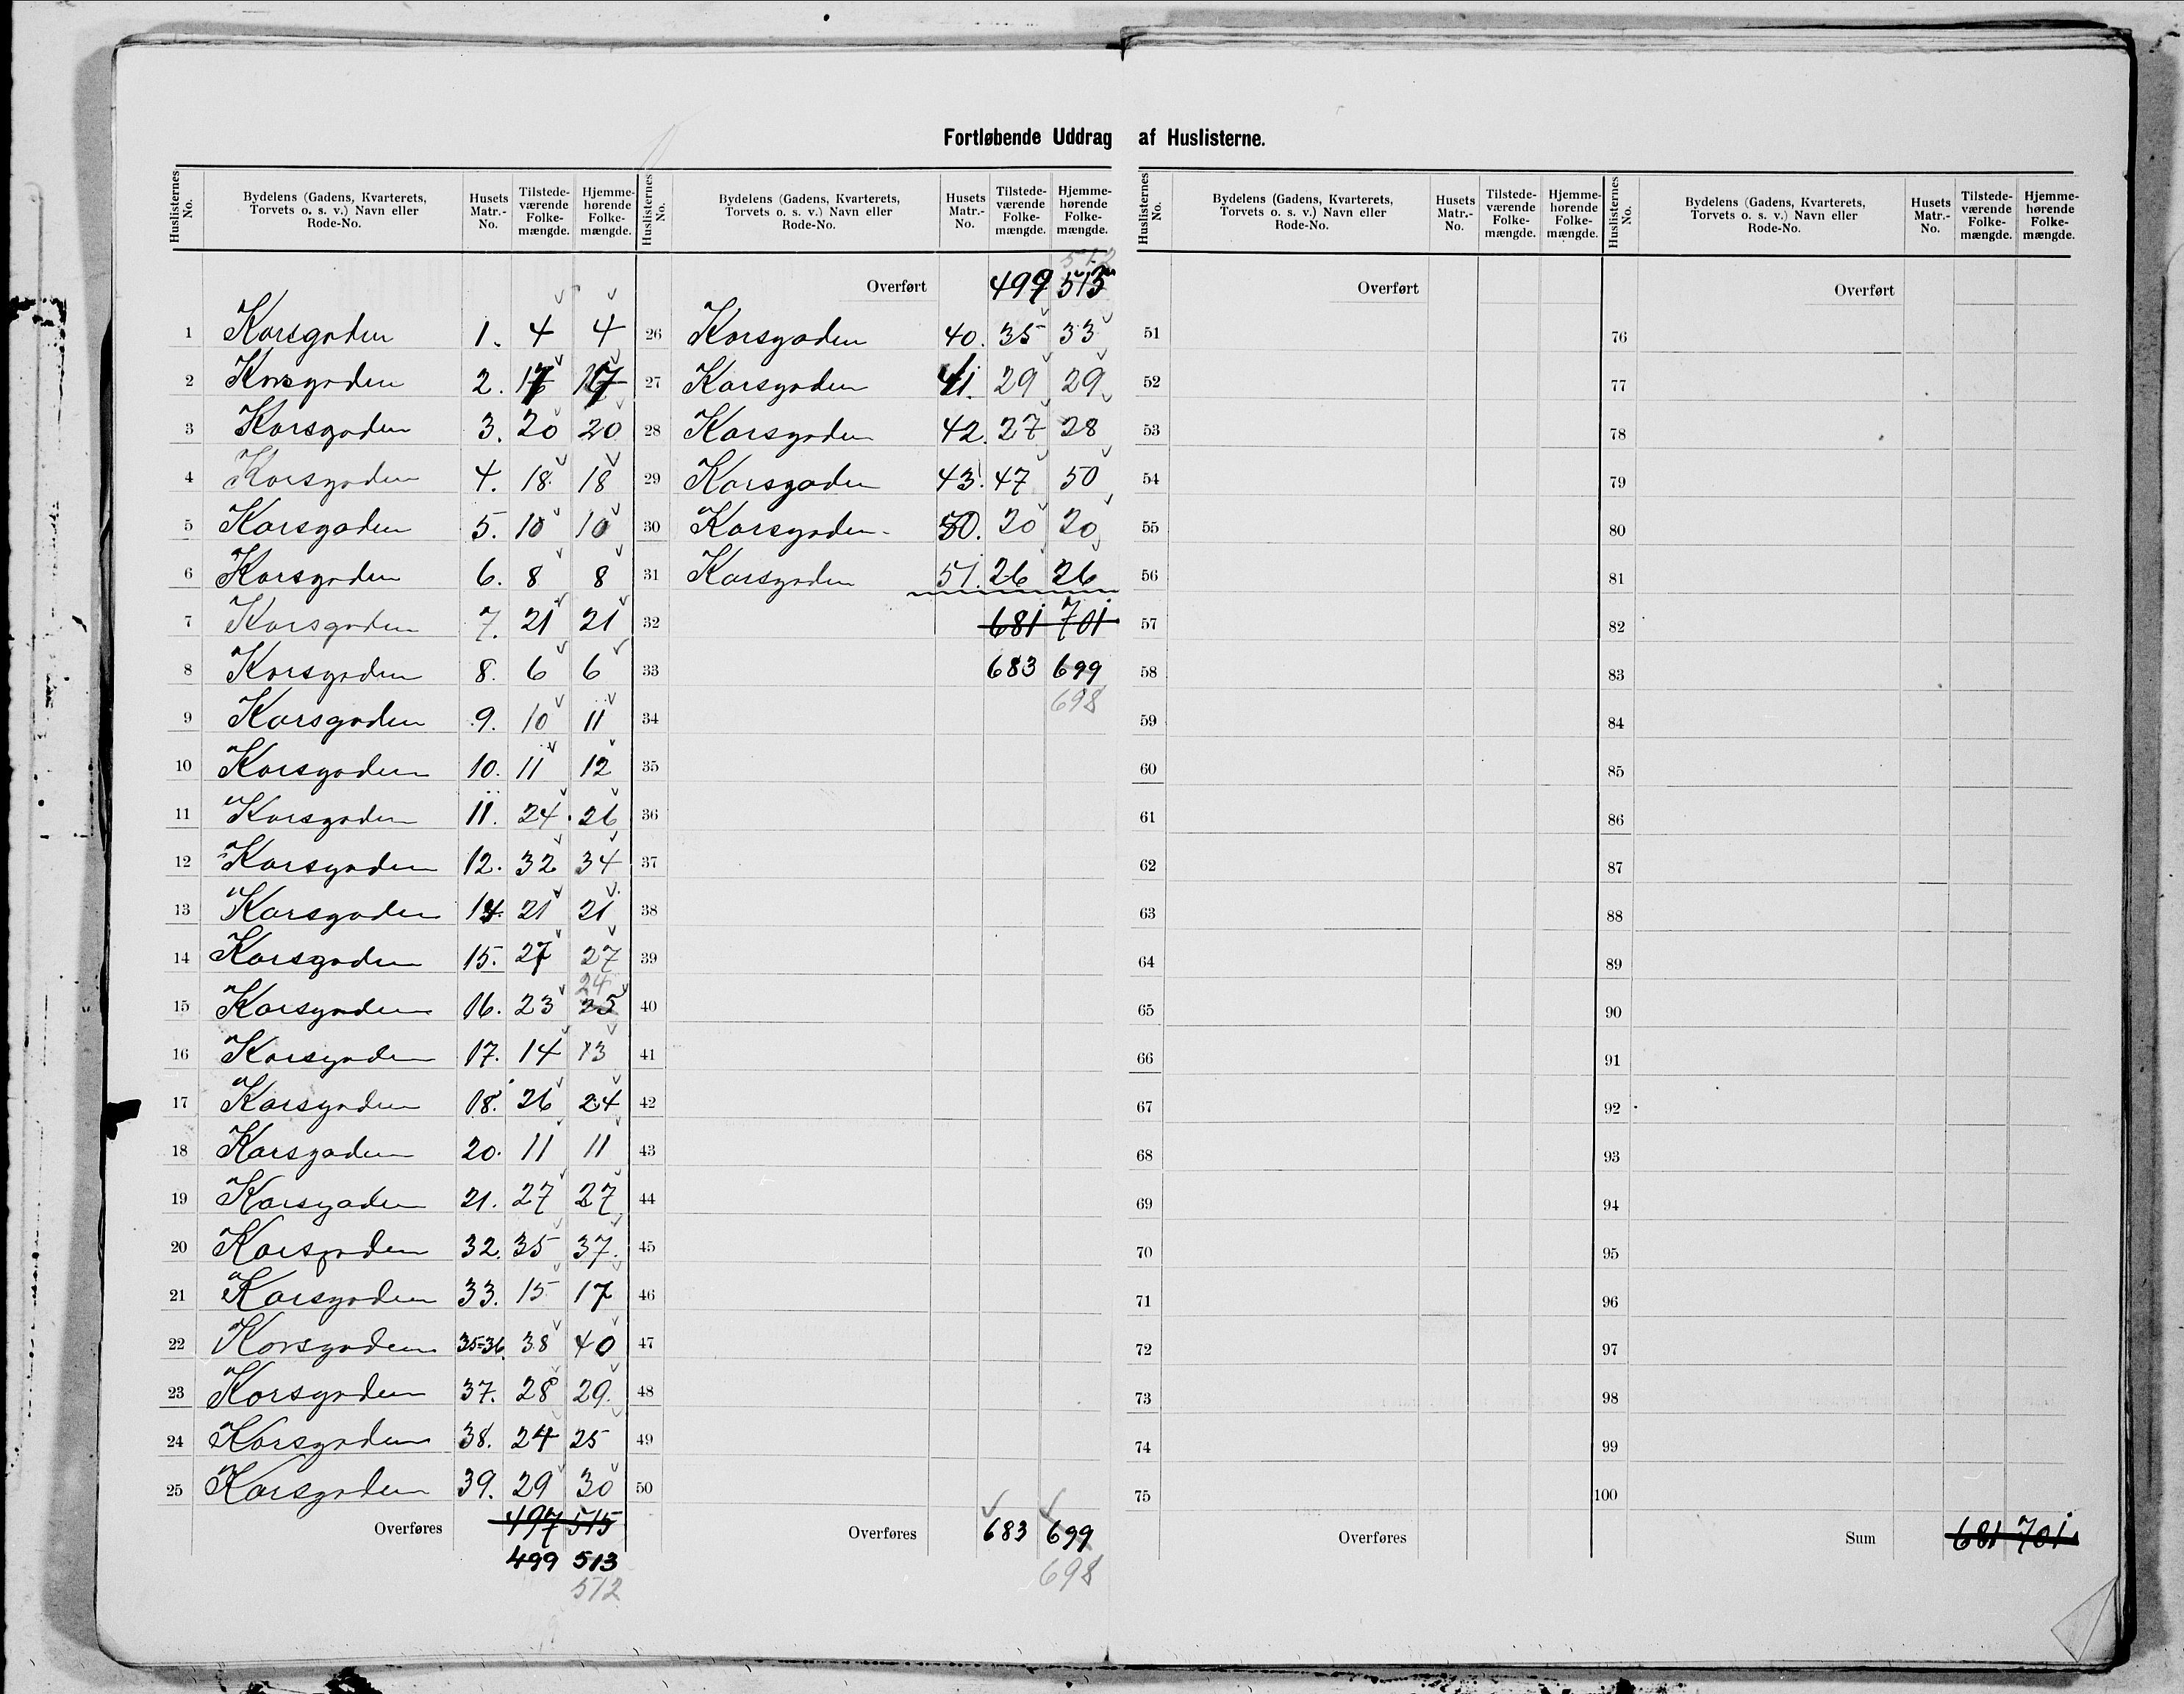 Fortløbende Uddrag af Huslisterne.
Huslisternes No. Bydelens (Gadens, Kvarterets, Torvets o. s. v.) Navn eller Rode-No. Husets Matr.-No. Tilstedeværende Folkemængde. Hjemmehørende Folkemængde.
1 Korsgaden 1. 4 4
2 Korsgaden 2. 17 17
3 Korsgaden 3. 20 20
4 Korsgaden 4. 18 18
5 Korsgaden 5. 10 10
6 Korsgaden 6. 8 8
7 Korsgaden 7. 21 21
8 Korsgaden 8. 6 6
9 Korsgaden 9. 10 11
10 Korsgaden 10. 11 12
11 Korsgaden 11. 24 26
12 Korsgaden 12. 32 34
13 Korsgaden 14. 21 21
14 Korsgaden 15. 27 27
24
15 Korsgaden 16. 23 25
16 Korsgaden 17. 14 13
17 Korsgaden 18. 26 24
18 Korsgaden 20. 11 11
19 Korsgaden 21. 27 27
20 Korsgaden 32. 35 37.
21 Korsgaden 33. 15 17
22 Korsgaden 35-36. 38 40
23 Korsgaden 37. 28 29.
24 Korsgaden 38. 24 25
25 Korsgaden 39. 29 30
Overføres 497 515
499 513
512
Huslisternes No. Bydelens (Gadens, Kvarterets, Torvets o. s. v.) Navn eller Rode-No. Husets Matr.-No. Tilstedeværende Folkemængde. Hjemmehørende Folkemængde.
512
Overført 499 513
26 Korsgaden 40. 35 33
27 Korsgaden 41. 29 29
28 Korsgaden 42. 27 28
29 Korsgaden 43. 47 50
30 Korsgaden 50. 20 20
31 Korsgaden 51. 26 26
32 681 701
33 683 699
698
34
35
36
37
38
39
40
41
42
43
44
45
46
47
48
49
50
Overføres 683 699
698
Huslisternes No. Bydelens (Gadens, Kvarterets, Torvets o. s. v.) Navn eller Rode-No. Husets Matr.-No. Tilstedeværende Folkemængde. Hjemmehørende Folkemængde.
Overført
51
52
53
54
55
56
57
58
59
60
61
62
63
64
65
66
67
68
69
70
71
72
73
74
75
Overføres
Huslisternes No. Bydelens (Gadens, Kvarterets, Torvets o. s. v.) Navn eller Rode-No. Husets Matr.-No. Tilstedeværende Folkemængde. Hjemmehørende Folkemængde.
Overført
76
77
78
79
80
81
82
83
84
85
86
87
88
89
90
91
92
93
94
95
96
97
98
99
100
Sum 681 701